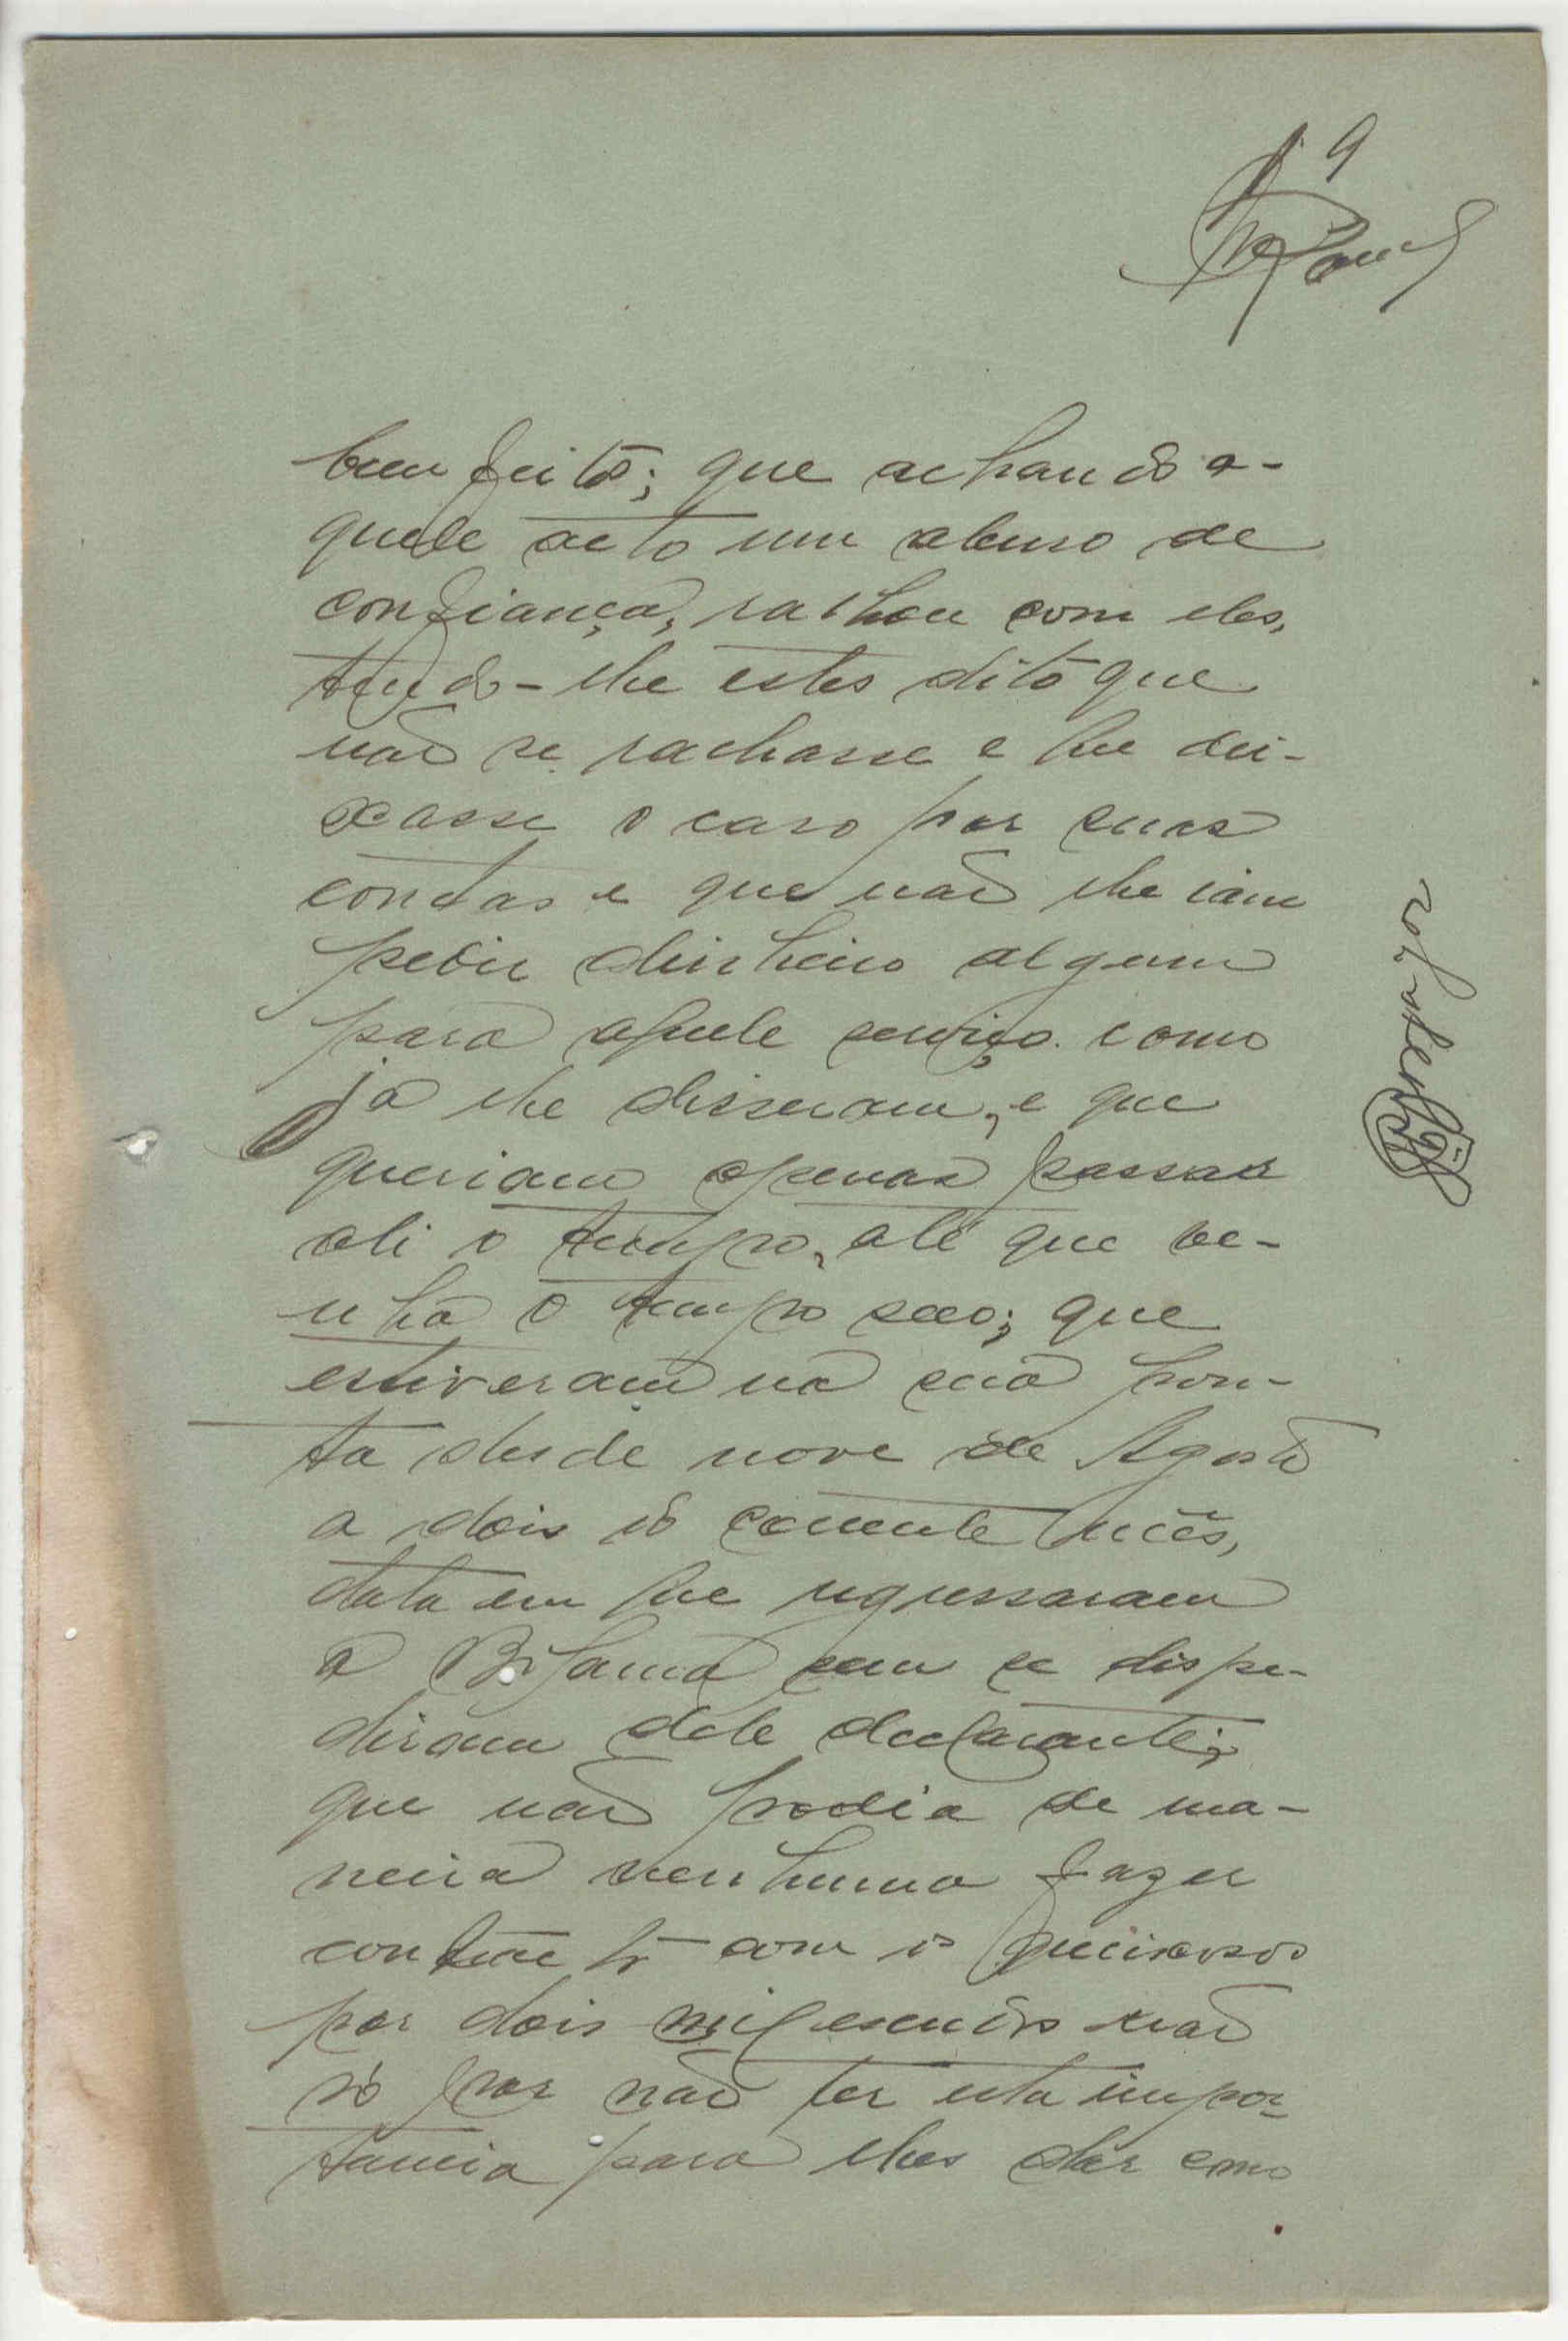 9
bem feito; que achando a-
quele acto um abuso de
confiança, ralhou com eles,
tendo-lhe estes dito que
não se rachasse e que dei-
xasse o caso por suas
contas e que não lhe iam
pedir dinheiro algum
para aquele serviço como
já lhe disseram, e que
queriam apenas passar
ali o tempo, até que ve-
nha o tempo seco; que
estiveram na sua pon-
ta desde nove de Agosto
a dois do corrente mês,
data em que regressaram
a Bijamá sem se dispe-
direm dele declarante;
que não podia de ma-
neira nenhuma fazer
contracto com os queixosos
por dois mil escudos não
só por não ter esta impor-
tancia para lhes dar como